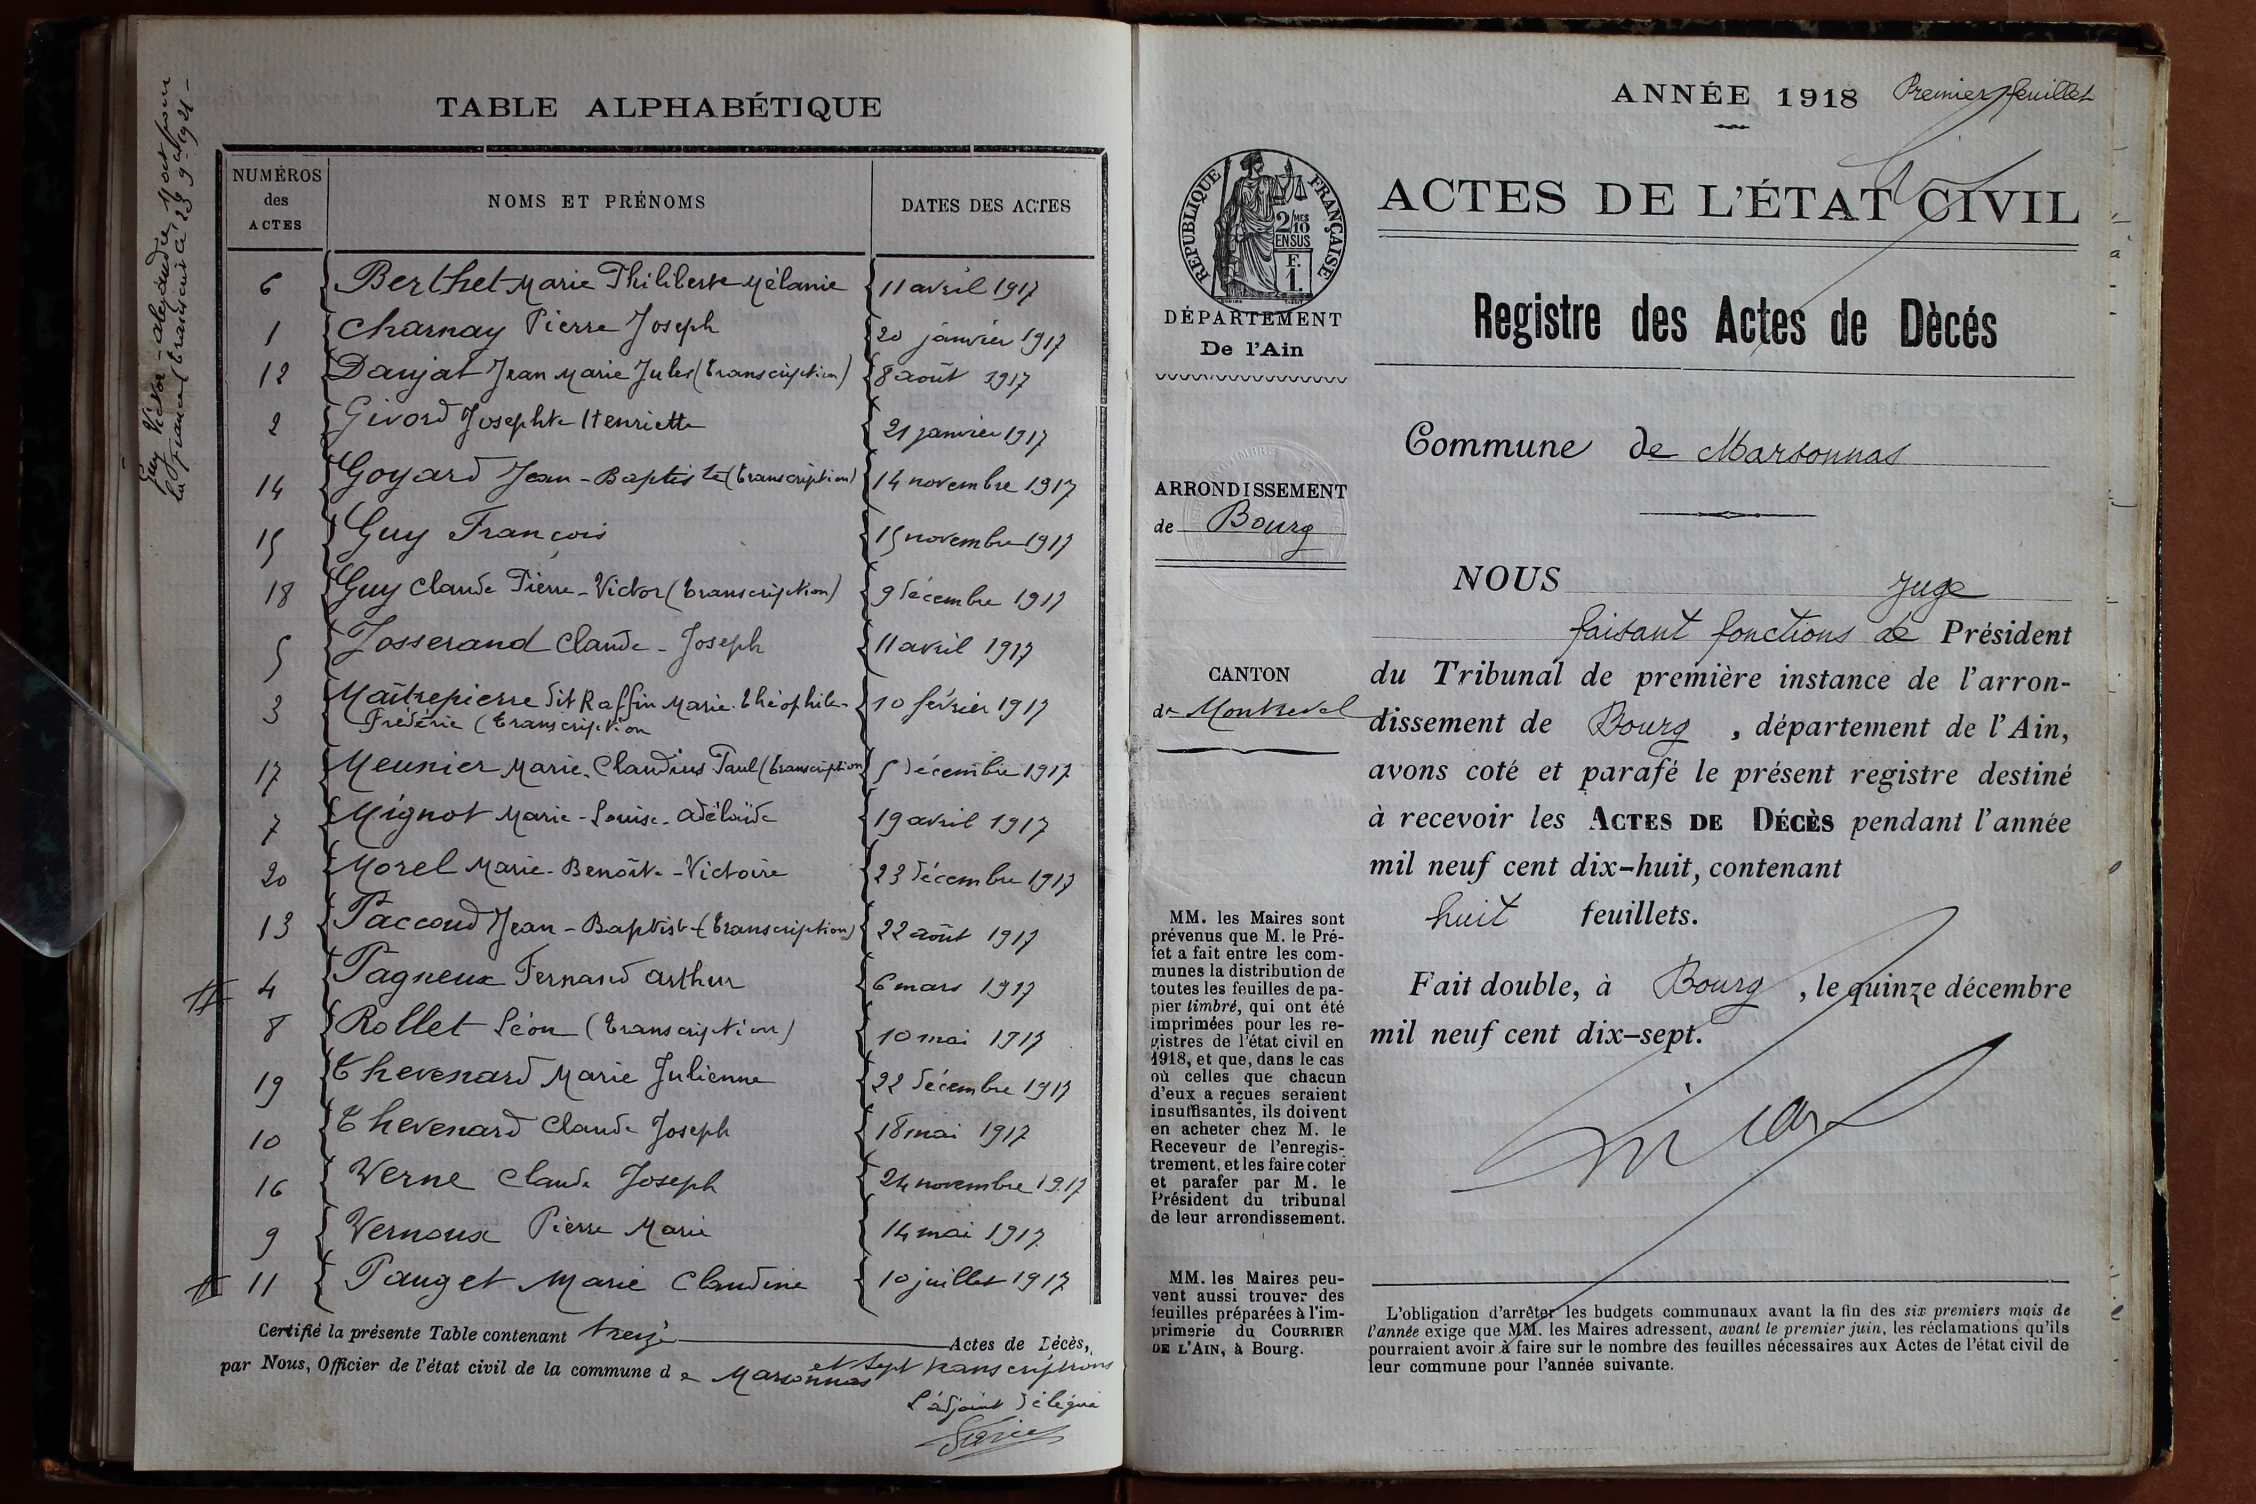 TABLE ALPHABÉTIQUE
NUMÉROS des ACTES
NOMS ET PRÉNOMS
DATES DES ACTES
6 Berthet Marie Philiberte Mélanie 11 avril 1917
1 Charnay Pierre Joseph 20 janvier 1917
12 Danjat Jean Marie Jules (transcription) 8 août 1917
2 Givord Josephte Henriette 21 janvier 1917
14 Goyard Jean-Baptiste (transcription) 14 novembre 1917
15 Guy François 15 novembre 1917
18 Guy Claude Pierre-Victor (transcription) 9 décembre 1917
5 Josserand Claude-Joseph 11 avril 1917
3 Maîtrepierre dit Raffin Marie-Théophile- 10 février 1917
Frédéric (transcription
17 Meunier Marie-Claudius Paul (transcription 5 décembre 1917
7 Mignot Marie-Louise-Adélaïde 19 avril 1917
20 Morel Marie-Benoîte-Victoire 23 décembre 1917
13 Paccoud Jean-Baptiste (transcription) 22 août 1917
4 Pagneux Fernand Arthur 6 mars 1917
8 Rollet Léon (transcription) 10 mai 1917
19 Thevenard Marie Julienne 22 décembre 1917
10 Thevenard Claude Joseph 18 mai 1917
16 Verne Claude Joseph 24 novembre 1917
9 Vernoux Pierre Marie 14 mai 1917
11 Pauget Marie Claudine 10 juillet 1917
Certifié la présente Table contenant treize Actes de Décès,
et sept transcriptions
par Nous, Officier de l'état civil de la commune de Marsonnas
L'adjoint délégué
Guy Victor-Alexandre Mort pour
la france (transcrit à 23 9 1921 -
ANNÉE 1918 Premier feuillet
RÉPUBLIQUE FRANÇAISE
2/10 MES
EN SUS
F.
1.
DÉPARTEMENT
De l'Ain
ARRONDISSEMENT
de Bourg
CANTON
de Montrevel
MM. les Maires sont
prévenus que M. le Pré-
fet a fait entre les com-
munes la distribution de
toutes les feuilles de pa-
pier timbré, qui ont été
imprimées pour les re-
gistres de l'état civil en
1918, et que, dans le cas
où celles que chacun
d'eux a reçues seraient
insuffisantes, ils doivent
en acheter chez M. le
Receveur de l'enregis-
trement, et les faire coter
et parafer par M. le
Président du tribunal
de leur arrondissement.
MM. les Maires peu-
vent aussi trouver des
feuilles préparées à l'im-
primerie du COURRIER
DE L'AIN, à Bourg.
ACTES DE L'ÉTAT CIVIL
Registre des Actes de Dècés
Commune de Marsonnas
NOUS Juge
faisant fonctions de Président
du Tribunal de première instance de l'arron-
dissement de Bourg, département de l'Ain,
avons coté et parafé le présent registre destiné
à recevoir les ACTES DE DÉCÈS pendant l'année
mil neuf cent dix-huit, contenant
huit feuillets.
Fait double, à Bourg, le quinze décembre
mil neuf cent dix-sept.
L'obligation d'arrêter les budgets communaux avant la fin des six premiers mois de
l'année exige que MM. les Maires adressent, avant le premier juin, les réclamations qu'ils
pourraient avoir à faire sur le nombre des feuilles nécessaires aux Actes de l'état civil de
leur commune pour l'année suivante.